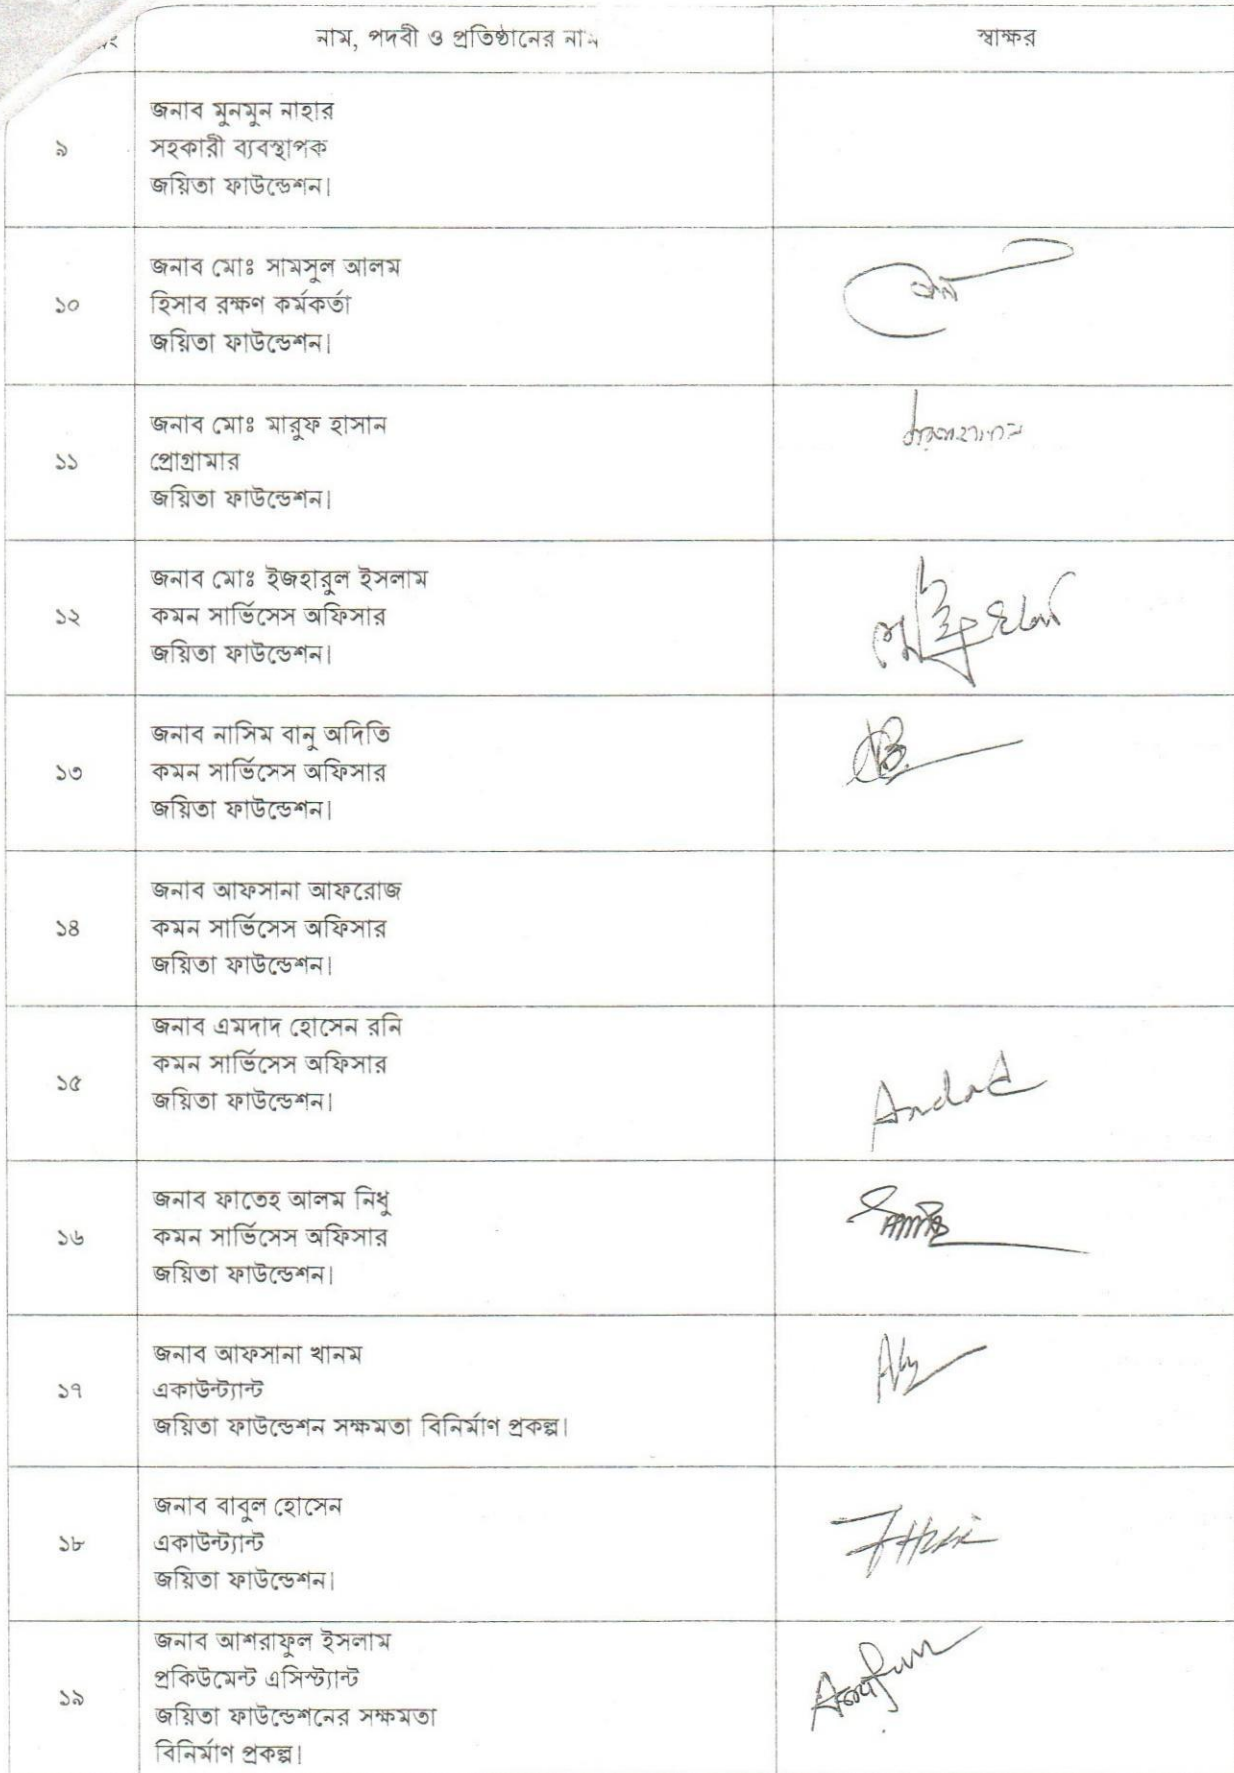 নাম, পদবী ও প্রতিষ্ঠানের নাম
স্বাক্ষর
৯
জনাব মুনমুন নাহার
সহকারী ব্যবস্থাপক
জয়িতা ফাউন্ডেশন।
১০
জনাব মোঃ সামসুল আলম
হিসাব রক্ষণ কর্মকর্তা
জয়িতা ফাউন্ডেশন।
১১
জনাব মোঃ মারুফ হাসান
প্রোগ্রামার
জয়িতা ফাউন্ডেশন।
১২
জনাব মোঃ ইজহারুল ইসলাম
কমন সার্ভিসেস অফিসার
জয়িতা ফাউন্ডেশন।
১৩
জনাব নাসিম বানু অদিতি
কমন সার্ভিসেস অফিসার
জয়িতা ফাউন্ডেশন।
১৪
জনাব আফসানা আফরোজ
কমন সার্ভিসেস অফিসার
জয়িতা ফাউন্ডেশন।
১৫
জনাব এমদাদ হোসেন রনি
কমন সার্ভিসেস অফিসার
জয়িতা ফাউন্ডেশন।
১৬
জনাব ফাতেহ আলম নিধু
কমন সার্ভিসেস অফিসার
জয়িতা ফাউন্ডেশন।
১৭
জনাব আফসানা খানম
একাউন্ট্যান্ট
জয়িতা ফাউন্ডেশন সক্ষমতা বিনির্মাণ প্রকল্প।
১৮
জনাব বাবুল হোসেন
একাউন্ট্যান্ট
জয়িতা ফাউন্ডেশন।
১৯
জনাব আশরাফুল ইসলাম
প্রকিউমেন্ট এসিস্ট্যান্ট
জয়িতা ফাউন্ডেশনের সক্ষমতা
বিনির্মাণ প্রকল্প।